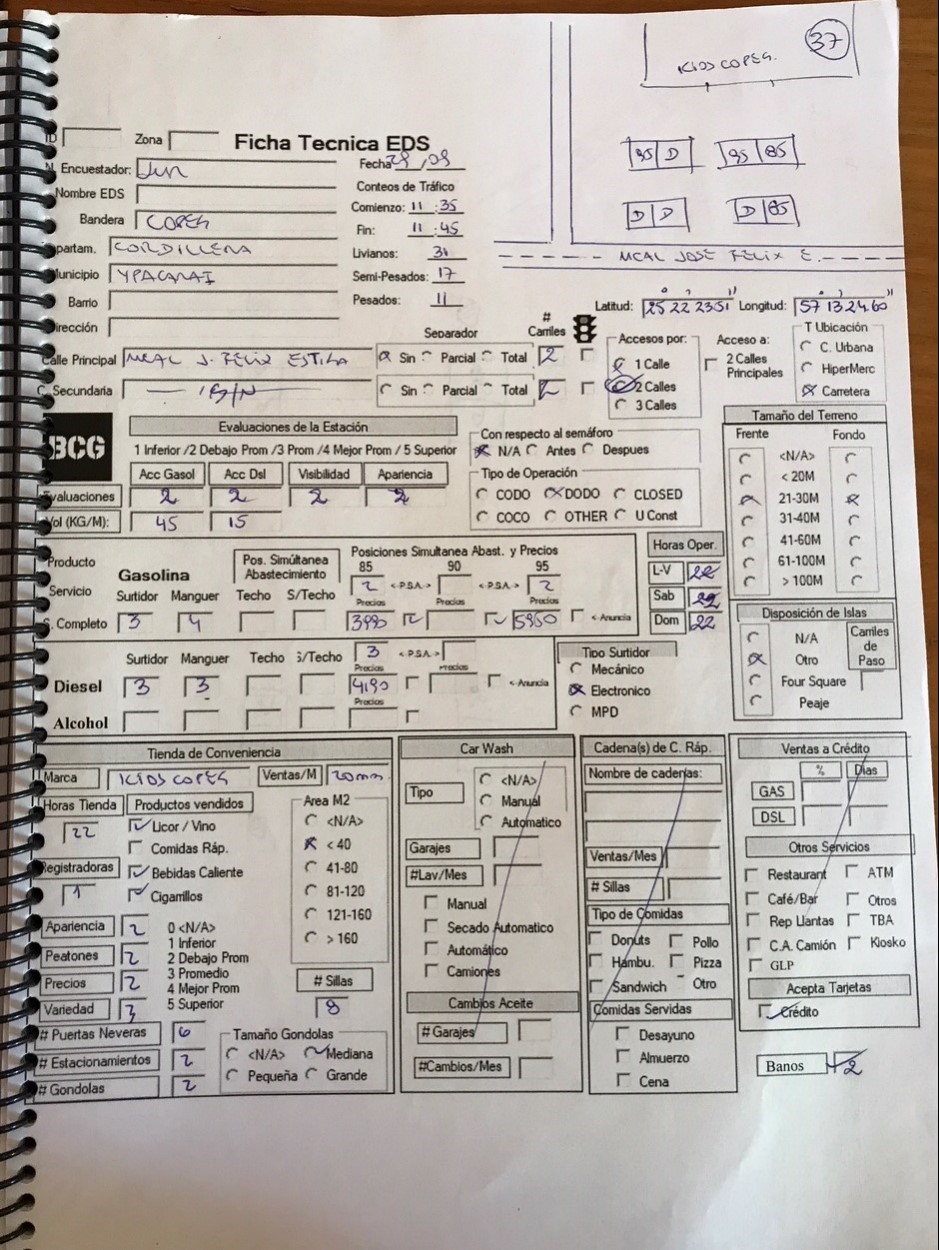 37
KIOSCOPEG.
95 D 95 85
D D D 85
MCAL JOSE FELIX E.
ID Zona Ficha Tecnica EDS
N. Encuestador:
Fecha
Nombre EDS
Conteos de Tráfico
Bandera COPEG
Comienzo: 11:35
Fin: 11:45
partam. CORDILLERA
Livianos: 31
Municipio YPACARAI
Semi-Pesados: 17
Barrio
Pesados: 11
Latitud: 25 22 2351 Longitud: 57 13 24.60
Dirección
Separador # Carriles
Calle Principal MCAL J. FELIX ESTIGA Sin Parcial Total 2
C. Secundaria S/N Sin Parcial Total
Accesos por:
1 Calle
2 Calles
3 Calles
Acceso a:
2 Calles Principales
T Ubicación
C. Urbana
HiperMerc
Carretera
BCG
Evaluaciones de la Estación
1 Inferior /2 Debajo Prom /3 Prom /4 Mejor Prom / 5 Superior
Acc Gasol Acc Dsl Visibilidad Apariencia
Evaluaciones 2 2 2 2
Vol (KG/M): 45 15
Con respecto al semáforo
N/A Antes Despues
Tipo de Operación
CODO DODO CLOSED
COCO OTHER U Const
Tamaño del Terreno
Frente Fondo
<N/A>
< 20M
21-30M
31-40M
41-60M
61-100M
> 100M
Producto
Servicio
Gasolina
Pos. Simúltanea Abastecimiento
Posiciones Simultanea Abast. y Precios
85 90 95
2 <-P.S.A.-> <-P.S.A.-> 2
Surtidor Manguer Techo S/Techo Precios Precios Precios
S. Completo 3 4 3990 5950 <-Anuncia
Horas Oper.
L-V 22
Sab 22
Dom 22
Surtidor Manguer Techo S/Techo 3 <-P.S.A.->
Precios Precios
Diesel 3 3 4190 <-Anuncia
Precios
Alcohol
Tipo Surtidor
Mecánico
Electronico
MPD
Disposición de Islas
N/A
Otro
Four Square
Peaje
Carriles de Paso
Tienda de Conveniencia
Marca KIOSCOPEG Ventas/M 20mm.
Horas Tienda Productos vendidos
22
Licor / Vino
Comidas Ráp.
Bebidas Caliente
Cigarrillos
Registradoras
1
Area M2
<N/A>
< 40
41-80
81-120
121-160
> 160
Apariencia 2
Peatones 2
Precios 2
Variedad 3
0 <N/A>
1 Inferior
2 Debajo Prom
3 Promedio
4 Mejor Prom
5 Superior
# Sillas
8
# Puertas Neveras 6
# Estacionamientos 2
# Gondolas 2
Tamaño Gondolas
<N/A> Mediana
Pequeña Grande
Car Wash
Tipo
<N/A>
Manual
Automatico
Garajes
#Lav/Mes
Manual
Secado Automatico
Automático
Camiones
Cambios Aceite
# Garajes
#Cambios/Mes
Cadena(s) de C. Ráp.
Nombre de cadenas:
Ventas/Mes
# Sillas
Tipo de Comidas
Donuts Pollo
Hambu. Pizza
Sandwich Otro
Comidas Servidas
Desayuno
Almuerzo
Cena
Ventas a Crédito
% Dias
GAS
DSL
Otros Servicios
Restaurant ATM
Café/Bar Otros
Rep Llantas TBA
C.A. Camión Kiosko
GLP
Acepta Tarjetas
Crédito
Banos 2